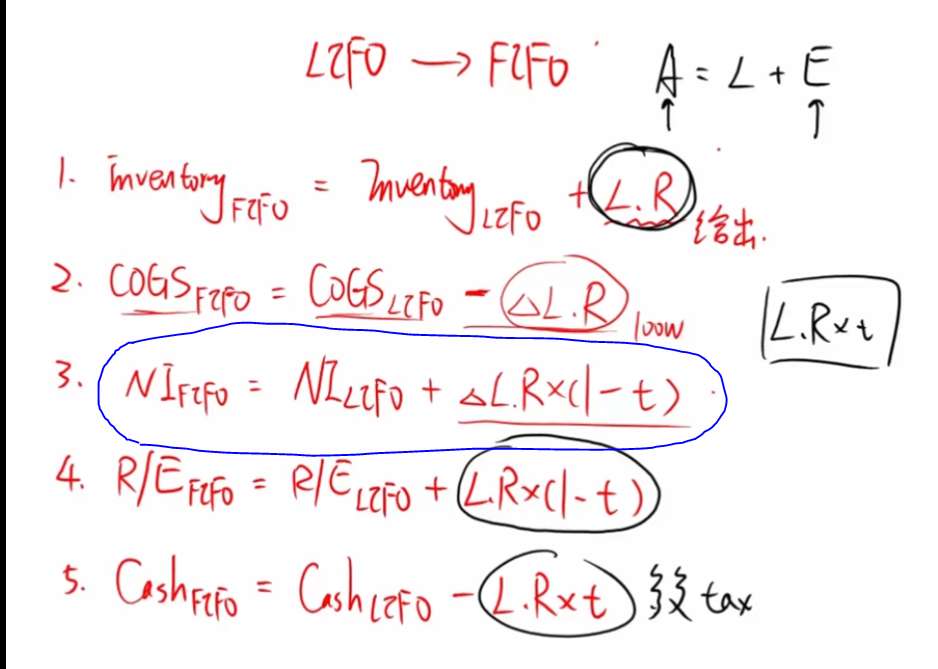 LIFO → FIFO
A = L + E
1. Inventory FIFO = Inventory LIFO + L.R 给出.
2. COGS FIFO = COGS LIFO - △L.R 100W
L.R×t
3. NI FIFO = NI LIFO + △L.R×(1-t)
4. R/E FIFO = R/E LIFO + L.R×(1-t)
5. Cash FIFO = Cash LIFO - L.R×t tax